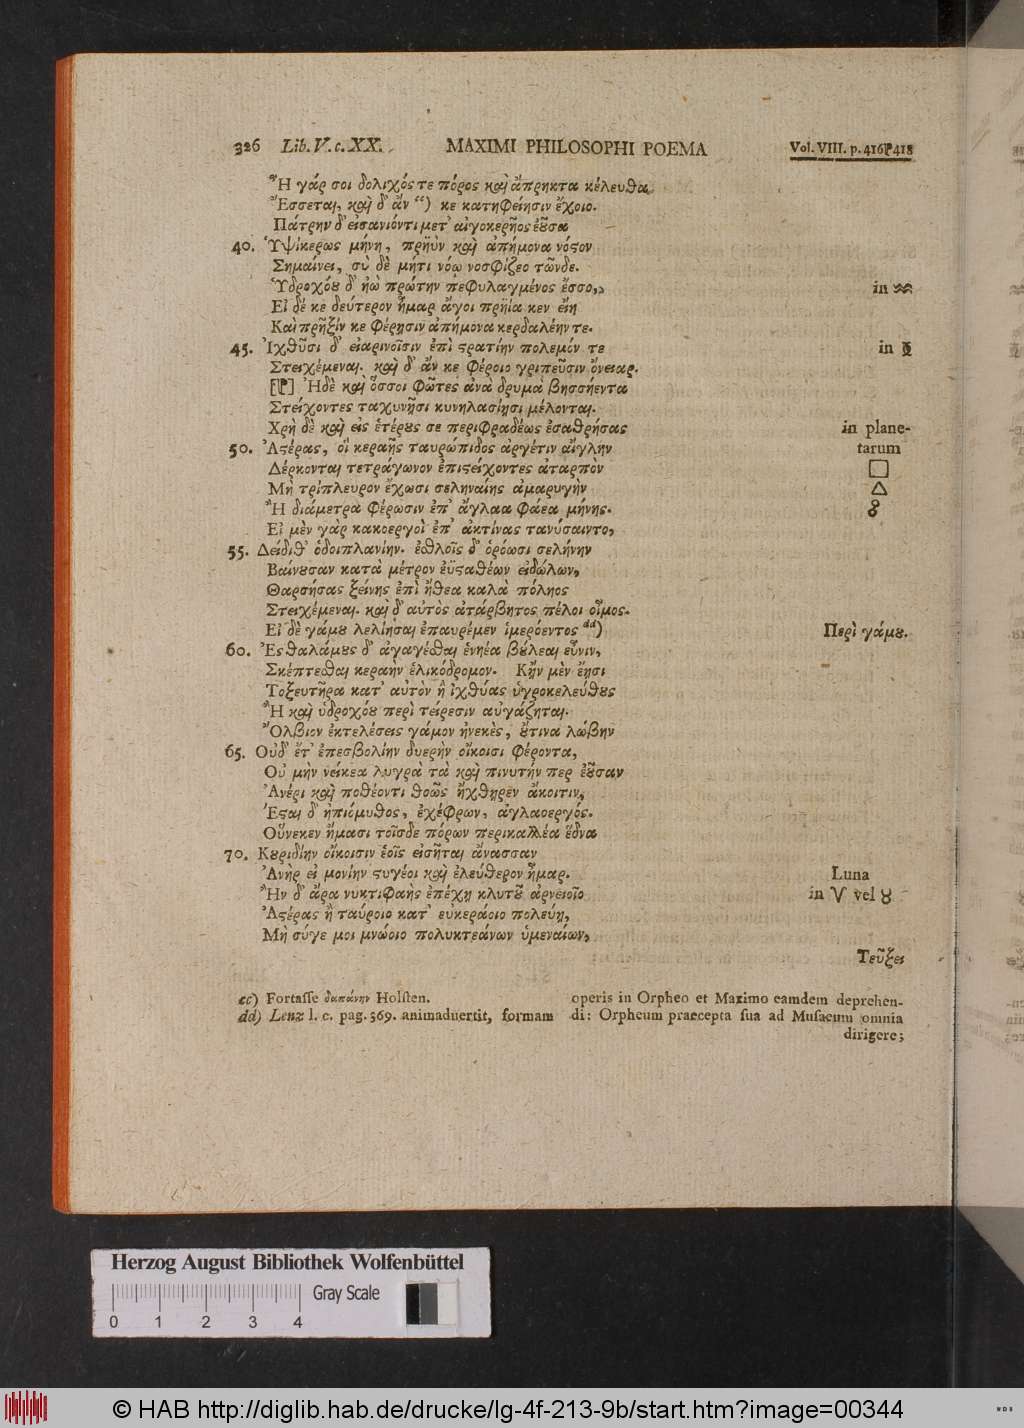 326 Lib. V. c. XX. MAXIMI PHILOSOPHI POEMA Vol. VIII. p. 416⁋418
Ἢ γάρ σοι δολιχός τε πόρος καὶ ἄπρηκτα κέλευθα
Ἔσσεται, καὶ δ᾽ ἂν cc) κε κατηφείησιν ἔχοιο.
Πάτρην δ᾽ εἰσανιόντι μετ᾽ αἰγοκερῆος ἐοῦσα
40. Ὑψίκερως μήνη, πρηῢν καὶ ἀπήμονα νόστον
Σημαίνει, σὺ δὲ μήτι νόῳ νοσφίζεο τῶνδε.
Ὑδροχόου δ᾽ ἠὼ πρώτην πεφυλαγμένος ἔσσο,, in ♒
Εἰ δέ κε δεύτερον ἦμαρ ἄγοι πρηΐα κεν εἴη
Καὶ πρῆξίν κε φέρησιν ἀπήμονα κερδαλέην τε.
45. Ἰχθῦσι δ᾽ εἰαρινοῖσιν ἐπὶ στρατίην πολεμόν τε in ♓
Στειχέμεναι. καὶ δ᾽ ἄν κε φέροιο γριπεῦσιν ὄνειαρ.
[⁋] Ἠδὲ καὶ ὅσσοι φῶτες ἀνὰ δρυμὰ βησσήεντα
Στείχοντες ταχυνῇσι κυνηλασίῃσι μέλονται.
Χρὴ δὲ καὶ εἰς ἑτέρους σε περιφραδέως ἐσαθρήσας in plane-
50. Ἀστέρας, οἳ κεραῆς ταυρώπιδος ἀργέτιν αἴγλην tarum
Δέρκονται τετράγωνον ἐπιστείχοντες ἀταρπὸν □
Μὴ τρίπλευρον ἔχωσι σεληναίης ἀμαρυγὴν △
Ἢ διάμετρα φέρωσιν ἐπ᾽ ἄγλαα φάεα μήνης. ☍
Εἰ μὲν γὰρ κακοεργοὶ ἐπ᾽ ἀκτίνας τανύσαιντο,
55. Δείδιθ᾽ ὁδοιπλανίην. ἐσθλοῖς δ᾽ ὁρόωσι σελήνην
Βαίνουσαν κατὰ μέτρον ἐϋσταθέων εἰδώλων,
Θαρσήσας ξείνης ἐπὶ ἤθεα καλὰ πόληος
Στειχέμεναι. καὶ δ᾽ αὐτὸς ἀτάρβητος πέλοι οἶμος.
Εἰ δὲ γάμου λελίησαι ἐπαυρέμεν ἱμερόεντος dd) Περὶ γάμου.
60. Ἐς θαλάμους δ᾽ ἀγαγέσθαι ἐνηέα βούλεαι εὖνιν,
Σκέπτεσθαι κεραὴν ἑλικόδρομον. Κἢν μὲν ἔῃσι
Τοξευτῆρα κατ᾽ αὐτὸν ἢ ἰχθύας ὑγροκελεύθους
Ἢ καὶ ὑδροχόου περὶ τείρεσιν αὐγάζηται.
Ὄλβιον ἐκτελέσεις γάμον ἠνεκὲς, οὔτινα λώβην
65. Οὐδ᾽ ἔτ᾽ ἐπεσβολίην δυερὴν οἴκοισι φέροντα,
Οὐ μὴν νείκεα λυγρὰ τὰ καὶ πινυτήν περ ἐοῦσαν
Ἀνέρι καὶ ποθέοντι θοῶς ἤχθῃρεν ἄκοιτιν,
Ἔσται δ᾽ ἠπιόμυθος, ἐχέφρων, ἀγλαοεργός.
Οὕνεκεν ἤμασι τοῖσδε πόρων περικαλλέα ἕδνα
70. Κουριδίην οἴκοισιν ἑοῖς εἰσῆται ἄνασσαν
Ἀνὴρ εἰ μονίην στυγέοι καὶ ἐλεύθερον ἦμαρ. Luna
Ἢν δ᾽ ἄρα νυκτιφαὴς ἐπέχῃ κλυτοῦ ἀρνειοῖο in ♈ vel ♉
Ἀστέρας ἢ ταύροιο κατ᾽ εὐκεράοιο πολεύῃ,
Μὴ σύγε μοι μνώοιο πολυκτεάνων ὑμεναίων,
Τεῦξει
cc) Fortasse δαπάνην Holsten.
dd) Lenz l. c. pag. 369. animaduertit, formam
operis in Orpheo et Maximo eamdem deprehen-
di: Orpheum praecepta sua ad Musaeum omnia
dirigere;
Herzog August Bibliothek Wolfenbüttel
Gray Scale
0 1 2 3 4
© HAB http://diglib.hab.de/drucke/lg-4f-213-9b/start.htm?image=00344